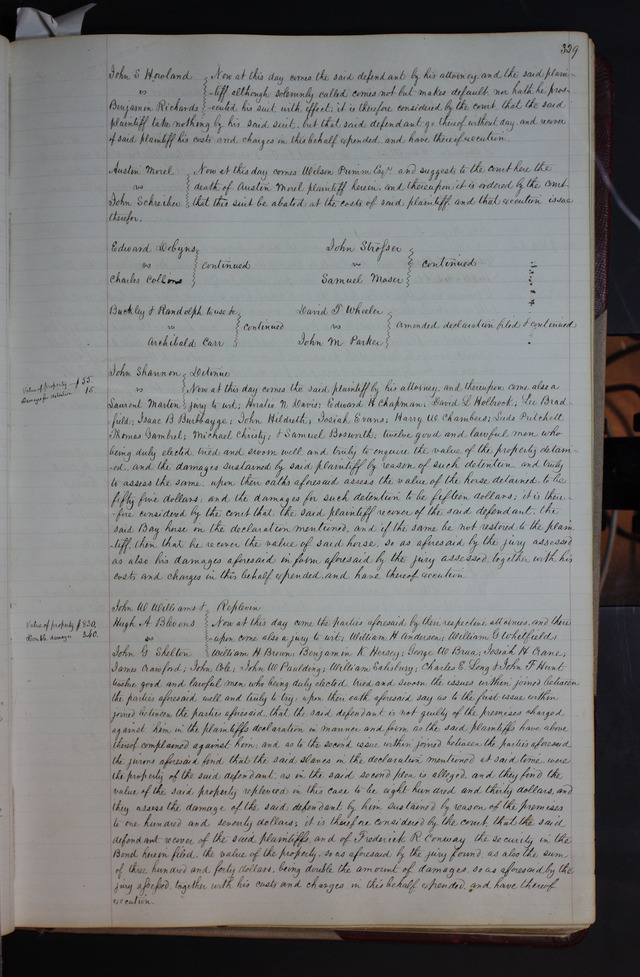 329
John S Howland } Now at this day comes the said defendant by his attorney, and the said plain-
vs } -tiff although solemnly called comes not but makes default, nor hath he pros-
Benjamin Richards } -ecuted his suit with effect; it is therefore considered by the court, that the said
plaintiff take nothing by his said suit, but that said defendant go thereof without day, and recover
of said plaintiff his costs and charges in this behalf expended, and have thereof execution.
Austin Morel } Now at this day comes Wilson Primm Esqr. and suggests to the court here the
vs } death of Austin Morel plaintiff herein, and thereupon it is ordered by the court
John Schreiber } that this suit be abated at the costs of said plaintiff, and that execution issue
therefor.
Edward Dobyns
vs } continued
Charles Collins
John Strosser
vs } continued
Samuel Moser
Buckley & Randolph to use &c
vs } continued
Archibald Carr
David T Wheeler
vs } amended declaration filed & continued
John M Parker
Value of property $55
Damages for detention 15.
John Shannon } Detinue
vs } Now at this day comes the said plaintiff by his attorney, and thereupon come also a
Laurent Martin } jury to wit; Horatio N Davis; Edward H Chapman; David L Holbrook; Lee Brad
field; Isaac B Burbayge; John Hildreth; Josiah Evans; Harry W Chambers; Seds Pulchett
Thomas Gambrel; Michael Christy; & Samuel Bosworth; twelve good and lawful men who
being duly elected tried and sworn well and truly to enquire the value of the property detain-
-ed, and the damages sustained by said plaintiff by reason of such detention and truly
to assess the same, upon their oaths aforesaid assess the value of the horse detained to be
fifty five dollars, and the damages for such detention to be fifteen dollars; it is there-
-fore considered by the court that the said plaintiff recover of the said defendant, the
said Bay horse in the declaration mentioned, and if the same be not restored to the plain
-tiff, then that he recover the value of said horse, so as aforesaid by the jury assessed
as also his damages aforesaid in form aforesaid by the jury assessed, together with his
costs and charges in this behalf expended, and have thereof execution
Value of property $830.
Double damages 340.
John W Williams & } Replevin
Hugh A Blevens } Now at this day come the parties aforesaid by their respective attornies, and there
vs } upon come also a jury to wit; William H Anderson; William G Whitfield;
John G Shelton } William H Brown; Benjamin K Hersey; George W Brua; Josiah H Crane;
James Crawford; John Cole; John W Paulding; William Salisbury; Charles E Long & John F Hunt
twelve good and lawful men, who being duly elected tried and sworn the issues within joined between
the parties aforesaid well and truly to try, upon their oath aforesaid say as to the first issue within
joined between the parties aforesaid, that the said defendant is not guilty of the premises charged
against him in the plaintiffs declaration in manner and form as the said plaintiffs have above
thereof complained against him; and as to the second issue within joined between the parties aforesaid
the jurors aforesaid find that the said slaves in the declaration mentioned at said time were
the property of the said defendant, as in the said second plea is alleged, and they find the
value of the said property replevied in this case to be eight hundred and thirty dollars, and
they assess the damage of the said defendant by him sustained by reason of the premises
to one hundred and seventy dollars; it is therefore considered by the court, that the said
defendant recover of the said plaintiffs, and of Frederick R Conway the security in the
Bond herein filed, the value of the property, so as aforesaid by the jury found, as also the sum
of three hundred and forty dollars, being double the amount of damages, so as aforesaid by the
jury assessed, together with his costs and charges in this behalf expended, and have thereof
execution.